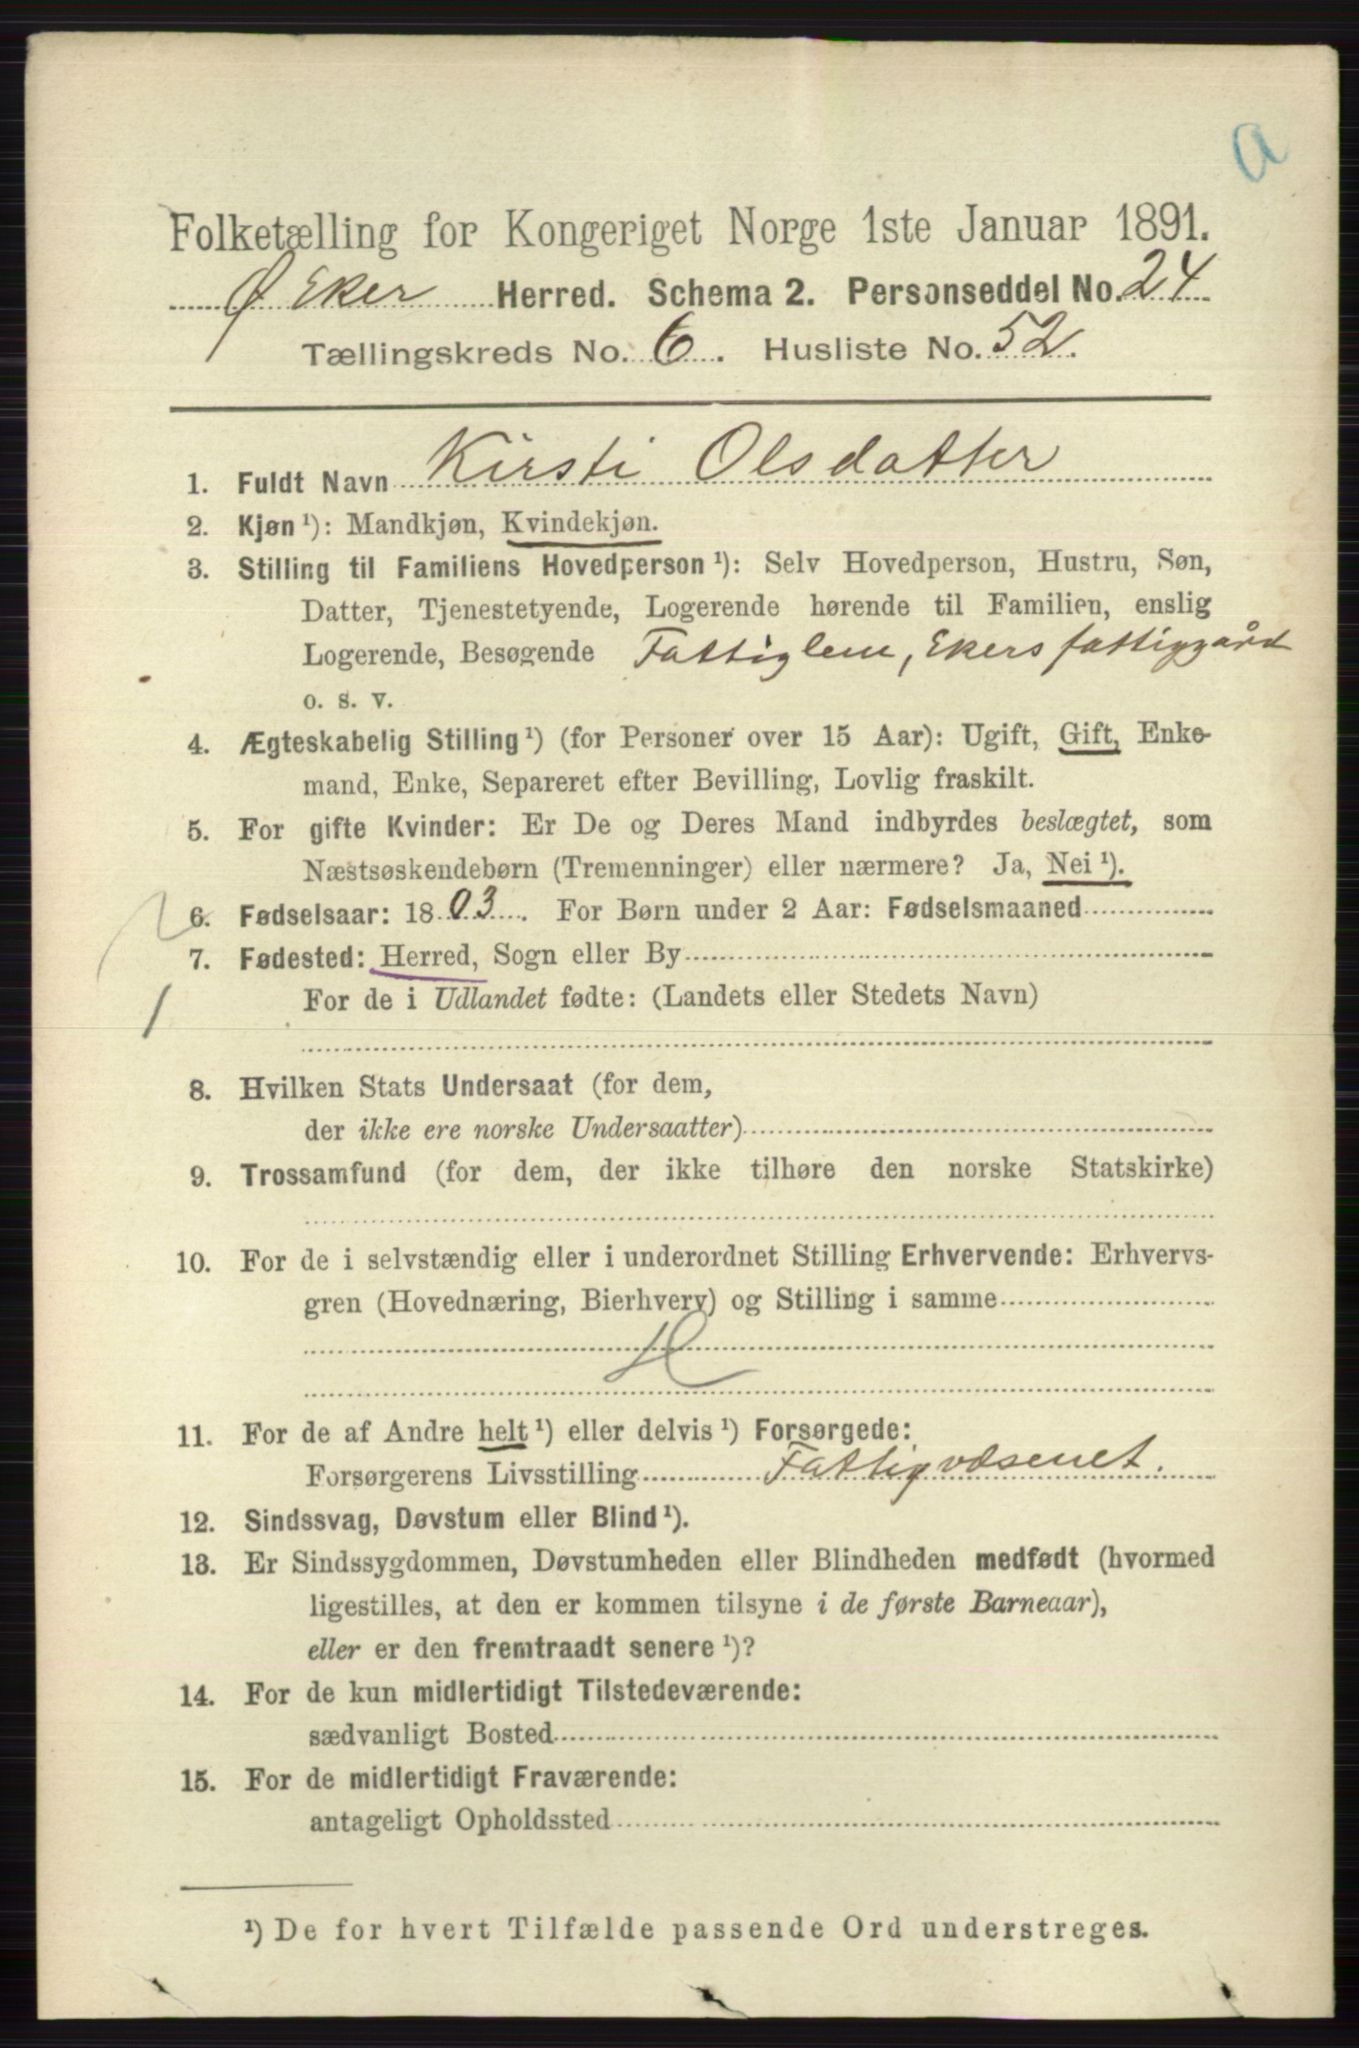 a
Folketælling for Kongeriget Norge 1ste Januar 1891.
Ø Eker Herred. Schema 2. Personseddel No. 24
Tællingskreds No. 6. Husliste No. 52.
1. Fuldt Navn Kirsti Olsdatter
2. Kjøn ¹): Mandkjøn, Kvindekjøn.
3. Stilling til Familiens Hovedperson ¹): Selv Hovedperson, Hustru, Søn,
Datter, Tjenestetyende, Logerende hørende til Familien, enslig
Logerende, Besøgende Fattiglem, Ekers fattiggård
o. s. v.
4. Ægteskabelig Stilling ¹) (for Personer over 15 Aar): Ugift, Gift, Enke-
mand, Enke, Separeret efter Bevilling, Lovlig fraskilt.
5. For gifte Kvinder: Er De og Deres Mand indbyrdes beslægtet, som
Næstsøskendebørn (Tremenninger) eller nærmere? Ja, Nei ¹).
6. Fødselsaar: 1803. For Børn under 2 Aar: Fødselsmaaned
7. Fødested: Herred, Sogn eller By
1
For de i Udlandet fødte: (Landets eller Stedets Navn)
8. Hvilken Stats Undersaat (for dem,
der ikke ere norske Undersaatter)
9. Trossamfund (for dem, der ikke tilhøre den norske Statskirke)
10. For de i selvstændig eller i underordnet Stilling Erhvervende: Erhvervs-
gren (Hovednæring, Bierhverv) og Stilling i samme
11. For de af Andre helt ¹) eller delvis ¹) Forsørgede:
Forsørgerens Livsstilling Fattigvæsenet.
12. Sindssvag, Døvstum eller Blind ¹).
13. Er Sindssygdommen, Døvstumheden eller Blindheden medfødt (hvormed
ligestilles, at den er kommen tilsyne i de første Barneaar),
eller er den fremtraadt senere ¹)?
14. For de kun midlertidigt Tilstedeværende:
sædvanligt Bosted
15. For de midlertidigt Fraværende:
antageligt Opholdssted
¹) De for hvert Tilfælde passende Ord understreges.